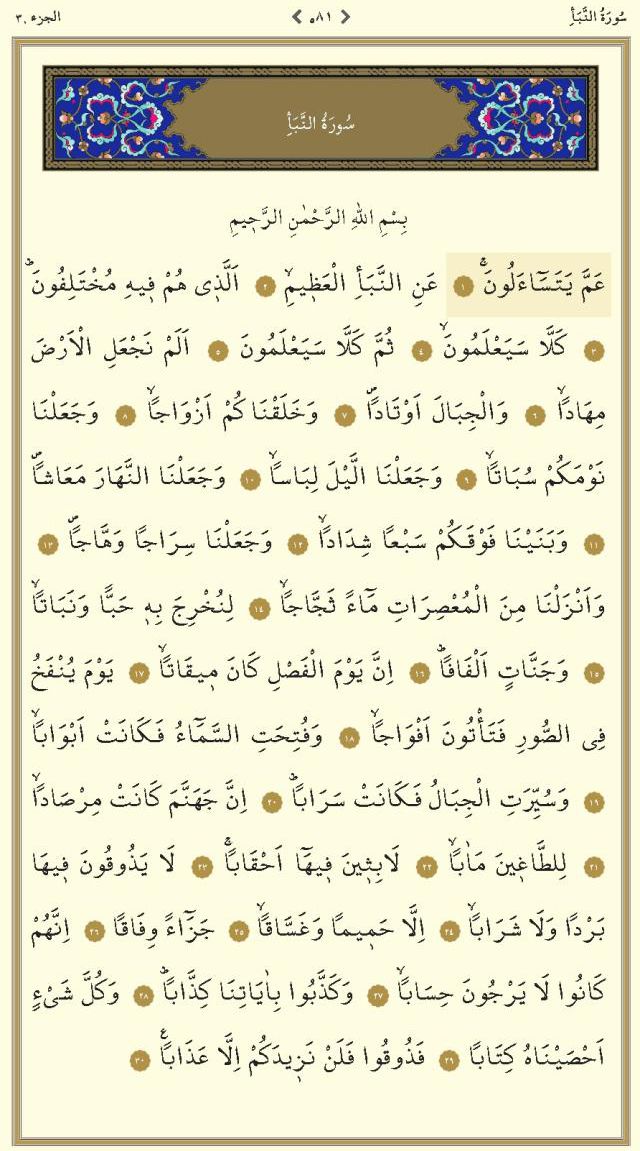 سُورَةُ النَّبَأِ ‹ ٥٨١ › الجزء ٣٠
سُورَةُ النَّبَأِ
بِسْمِ اللهِ الرَّحْمٰنِ الرَّحِيمِ
عَمَّ يَتَسَٓاءَلُونَۚ ١ عَنِ النَّبَأِ الْعَظِيمِۙ ٢ اَلَّذِى هُمْ فِيهِ مُخْتَلِفُونَۜ
٣ كَلَّا سَيَعْلَمُونَۙ ٤ ثُمَّ كَلَّا سَيَعْلَمُونَ ٥ اَلَمْ نَجْعَلِ الْاَرْضَ
مِهَاداًۙ ٦ وَالْجِبَالَ اَوْتَاداًۖ ٧ وَخَلَقْنَاكُمْ اَزْوَاجاًۙ ٨ وَجَعَلْنَا
نَوْمَكُمْ سُبَاتاًۙ ٩ وَجَعَلْنَا الَّيْلَ لِبَاساًۙ ١٠ وَجَعَلْنَا النَّهَارَ مَعَاشاًۖ
١١ وَبَنَيْنَا فَوْقَكُمْ سَبْعًا شِدَاداًۙ ١٢ وَجَعَلْنَا سِرَاجًا وَهَّاجاًۖ ١٣
وَاَنْزَلْنَا مِنَ الْمُعْصِرَاتِ مَٓاءً ثَجَّاجاًۙ ١٤ لِنُخْرِجَ بِهٖ حَبًّا وَنَبَاتاًۙ
١٥ وَجَنَّاتٍ اَلْفَافاًۜ ١٦ اِنَّ يَوْمَ الْفَصْلِ كَانَ مِيقَاتاًۙ ١٧ يَوْمَ يُنْفَخُ
فِى الصُّورِ فَتَأْتُونَ اَفْوَاجاًۙ ١٨ وَفُتِحَتِ السَّمَٓاءُ فَكَانَتْ اَبْوَاباًۙ
١٩ وَسُيِّرَتِ الْجِبَالُ فَكَانَتْ سَرَاباًۜ ٢٠ اِنَّ جَهَنَّمَ كَانَتْ مِرْصَاداًۙ
٢١ لِلطَّاغِينَ مَاٰباًۙ ٢٢ لَابِثِينَ فِيهَٓا اَحْقَاباًۚ ٢٣ لَا يَذُوقُونَ فِيهَا
بَرْدًا وَلَا شَرَاباًۙ ٢٤ اِلَّا حَمِيمًا وَغَسَّاقاًۙ ٢٥ جَزَٓاءً وِفَاقًا ٢٦ اِنَّهُمْ
كَانُوا لَا يَرْجُونَ حِسَاباًۙ ٢٧ وَكَذَّبُوا بِاٰيَاتِنَا كِذَّاباًۜ ٢٨ وَكُلَّ شَىْءٍ
اَحْصَيْنَاهُ كِتَابًا ٢٩ فَذُوقُوا فَلَنْ نَزِيدَكُمْ اِلَّا عَذَاباًࣖ ٣٠